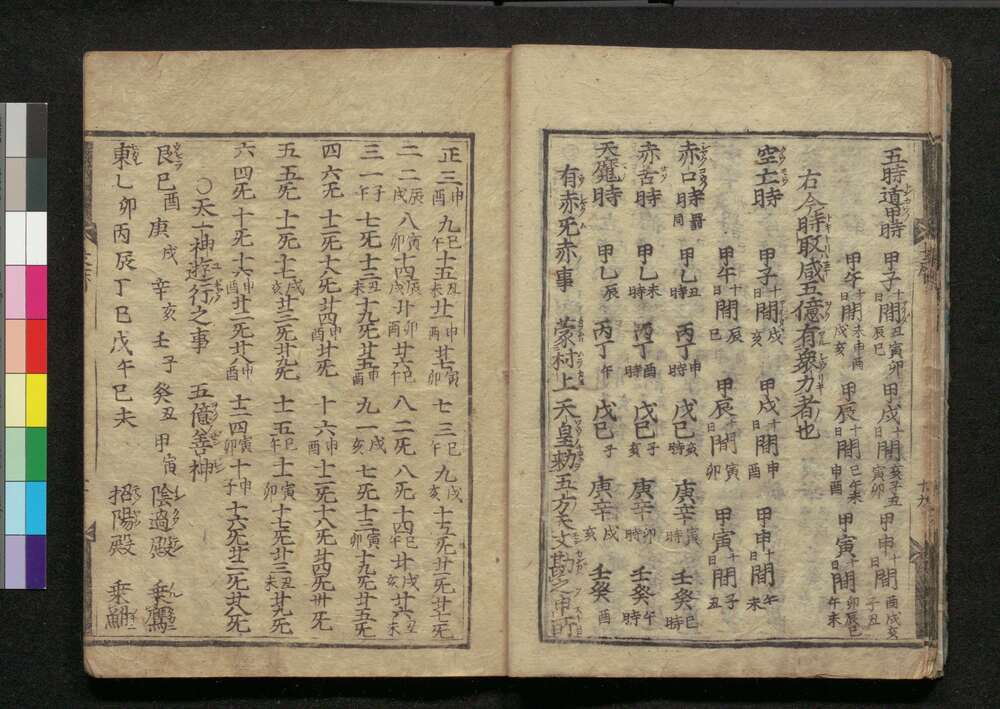 五時道甲時 甲子十日間丑寅卯辰巳 甲戌十日間亥子丑寅卯 甲申十日間酉戌亥子丑
甲午十日間未申酉戌亥 甲辰十日間巳午未申酉 甲寅十日間卯辰巳午未
右今時取咸五億有衆力者也
空亡時 甲子十日間戌亥 甲戌十日間申酉 甲申十日間午未
甲午十日間辰巳 甲辰十日間寅卯 甲寅十日間子丑
赤口時 甲乙丑時 丙丁申時 戊己亥時 庚辛寅時 壬癸巳時
赤舌時 甲乙未時 丙丁酉時 戊己子亥 庚辛卯時 壬癸午時
天魔時 甲乙辰 丙丁午 戊己子 庚辛戌亥 壬癸酉
有赤死赤事 蒙村上天皇勅五方
正三申酉 九巳午 十五丑未 廿一申酉 廿七寅卯 七三巳午 九戌亥 十五死廿一死廿七死
二二辰戌 八寅卯 十四辰戌 廿卯酉 廿六巳午 八二死 八死 十四巳午 廿戌亥 廿六丑未
三一子午 七死 十三丑未 十九死 廿五申酉 九一戌亥 七死 十三寅卯 十九死 廿五死
四六死 十二死 十八死 廿四申酉 卅死 十六申酉 十二死 十八死 廿四死 卅死
五五死 十一死 十七戌亥 廿三死 廿九死 十一五巳午 十一寅卯 十七死 廿三丑未 廿九死
六四死 十死 十六申酉 廿二死 廿八申酉 十二四寅卯 十申子 十六死 廿二死 廿八死
○天一神遊行之事 五億善神
艮己酉 庚戌 辛亥 壬子 癸丑 甲寅 陰過殿 乗鷹
東乙卯丙辰丁巳戊午己未 招陽殿 乗